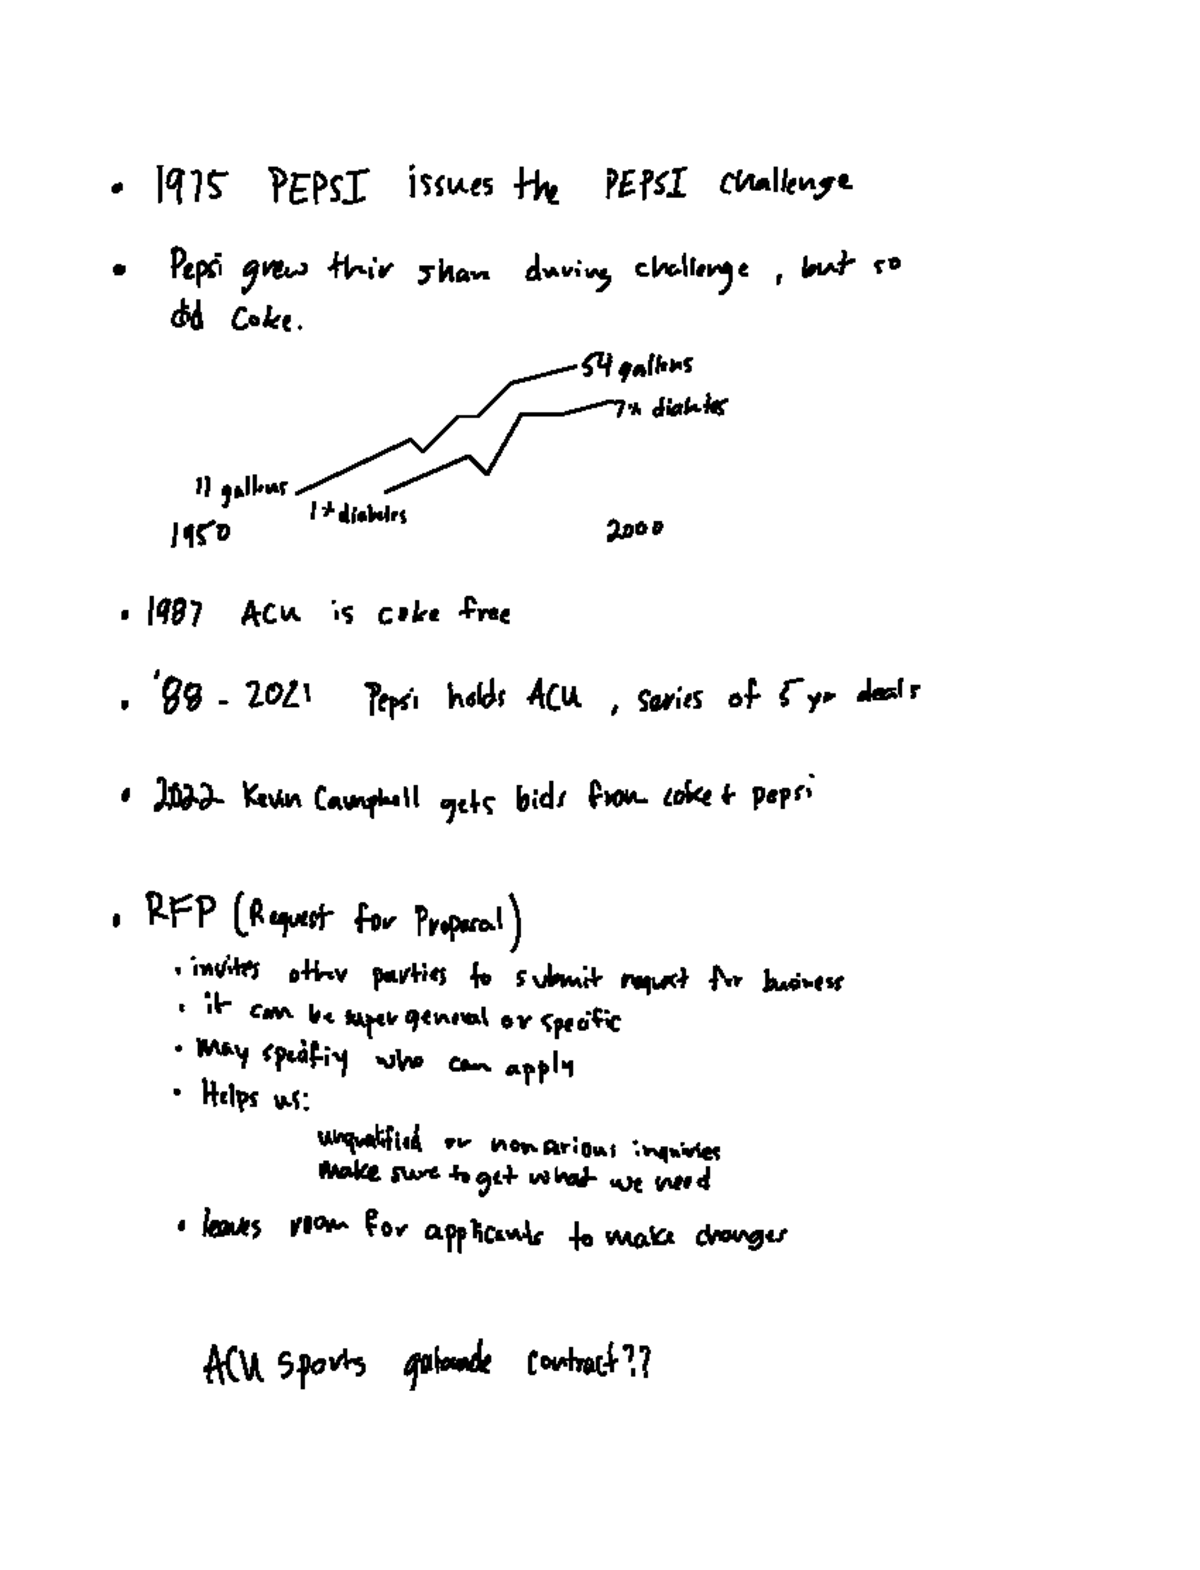 • 1975 PEPSI issues the PEPSI challenge
• Pepsi grew their share during challenge, but so
did Coke.
54 gallons
7% diabetes
11 gallons
1% diabetes
1950 2000
• 1987 ACU is coke free
• '88 - 2021 Pepsi holds ACU, series of 5 yr deals
• 2022 Kevin Campbell gets bids from coke + pepsi
• RFP (Request for Proposal)
• invites other parties to submit request for business
• it can be super general or specific
• May specifiy who can apply
• Helps us:
unqualified or nonserious inquiries
make sure to get what we need
• leaves room for applicants to make changes
ACU sports gatorade contract??